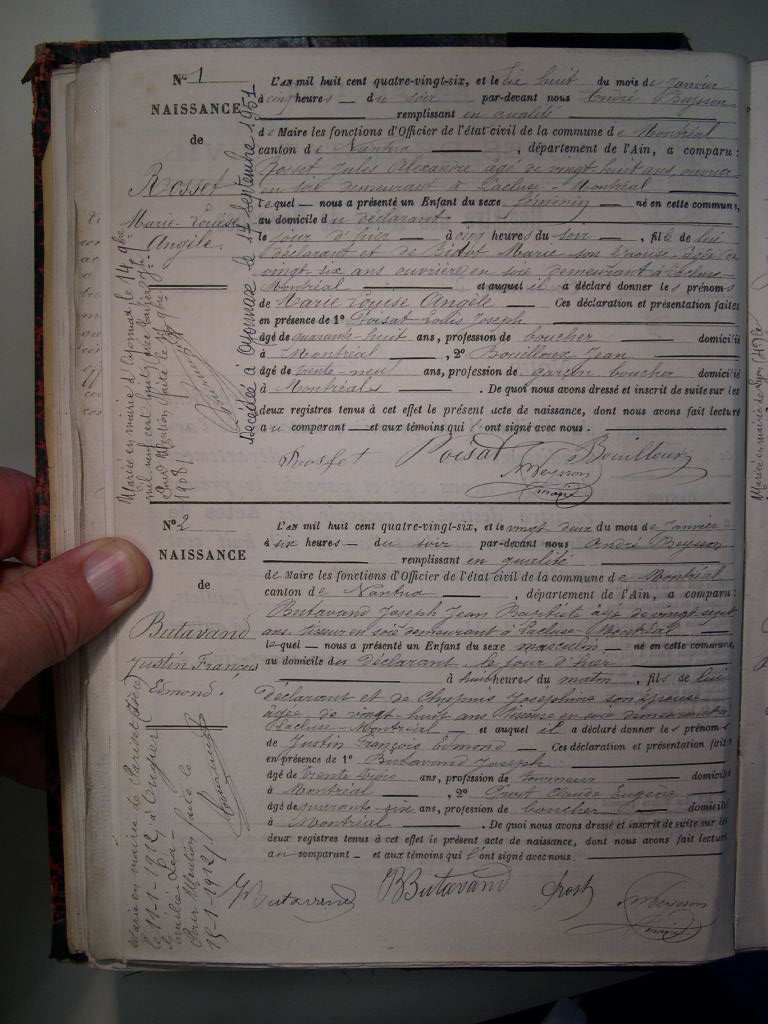 N° 1
NAISSANCE
de
Rosset
Marie-Louise
Angèle
L'AN mil huit cent quatre-vingt-six, et le huit du mois de Janvier
à cinq heures du soir par-devant nous André
remplissant en qualité
de Maire les fonctions d'Officier de l'état-civil de la commune de Montréal
canton de Nantua, département de l'Ain, a comparu :
Rosset Jules Alexandre âgé de vingt huit ans ouvrier
en soie demeurant à Lacluse-Montréal
lequel — nous a présenté un Enfant du sexe féminin — né en cette commune,
au domicile du déclarant
le jour d'hier — à cinq heures du soir —, fille de lui
déclarant et de Marie son épouse âgée de
vingt six ans ouvrière en soie demeurant à Lacluse-
Montréal et auquel il a déclaré donner les prénoms
de Marie Louise Angèle — Ces déclaration et présentation faites
en présence de 1° Poisat Louis Joseph
âgé de quarante-huit ans, profession de boucher domicilié
à Montréal —, 2° Bouilloux Jean
âgé de trente-neuf ans, profession de garçon boucher domicilié
à Montréal. De quoi nous avons dressé et inscrit de suite sur les
deux registres tenus à cet effet le présent acte de naissance, dont nous avons fait lecture
au comparant — et aux témoins qui l'ont signé avec nous.
Rosset Poisat Bouilloux
maire
Décédée à Oyonnax le 11 Septembre 1951
Mariée en mairie d'Oyonnax le 14 9bre
mil neuf cent huit avec
Pour Mention faite le 9bre
1908
N° 2
NAISSANCE
de
Butavand
Justin François
Edmond.
L'AN mil huit cent quatre-vingt-six, et le vingt deux du mois de Janvier
à six heures — du soir par-devant nous André
remplissant en qualité
de Maire les fonctions d'Officier de l'état civil de la commune de Montréal
canton de Nantua, département de l'Ain, a comparu :
Butavand Joseph Jean Baptiste âgé de vingt sept
ans tisseur en soie demeurant à Lacluse (Montréal)
lequel — nous a présenté un Enfant du sexe masculin — né en cette commune,
au domicile du Déclarant le jour d'hier
à huit heures du matin, fils de lui
Déclarant et de Joséphine son épouse
âgée de vingt-huit ans tisseuse en soie demeurant à
Lacluse-Montréal — et auquel il a déclaré donner les prénoms
de Justin François Edmond — Ces déclaration et présentation faites
en présence de 1° Butavand Joseph
âgé de trente ans, profession de domicilié
à Montréal, 2° Prost Claude Eugène
âgé de quarante-six ans, profession de boucher domicilié
à Montréal. De quoi nous avons dressé et inscrit de suite sur les
deux registres tenus à cet effet le présent acte de naissance, dont nous avons fait lecture
au comparant — et aux témoins qui l'ont signé avec nous.
Butavand Butavand Prost
maire
Marié en mairie de
le 11-1-1912 à
Léa
Pour Mention faite le
15-1-1912